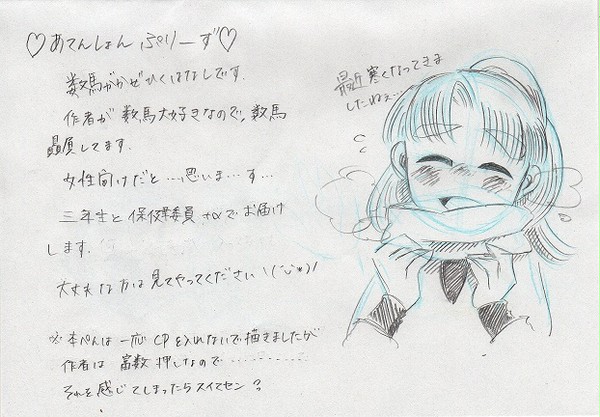 ♡あてんしょん ぷりーず♡
数馬がかぜひくはなしです。
作者が数馬大好きなので、数馬
贔屓してます。
女性向けだと…思いま…す…
三年生と保健委員+αでお届け
します。
大丈夫な方は見てやってください\(^∪^*)/
※本ぺんは一応CPを入れないで描きましたが
作者は富数押しなので…………
それを感じてしまったらスイマセン?
最近寒くなってきま
したねぇ…